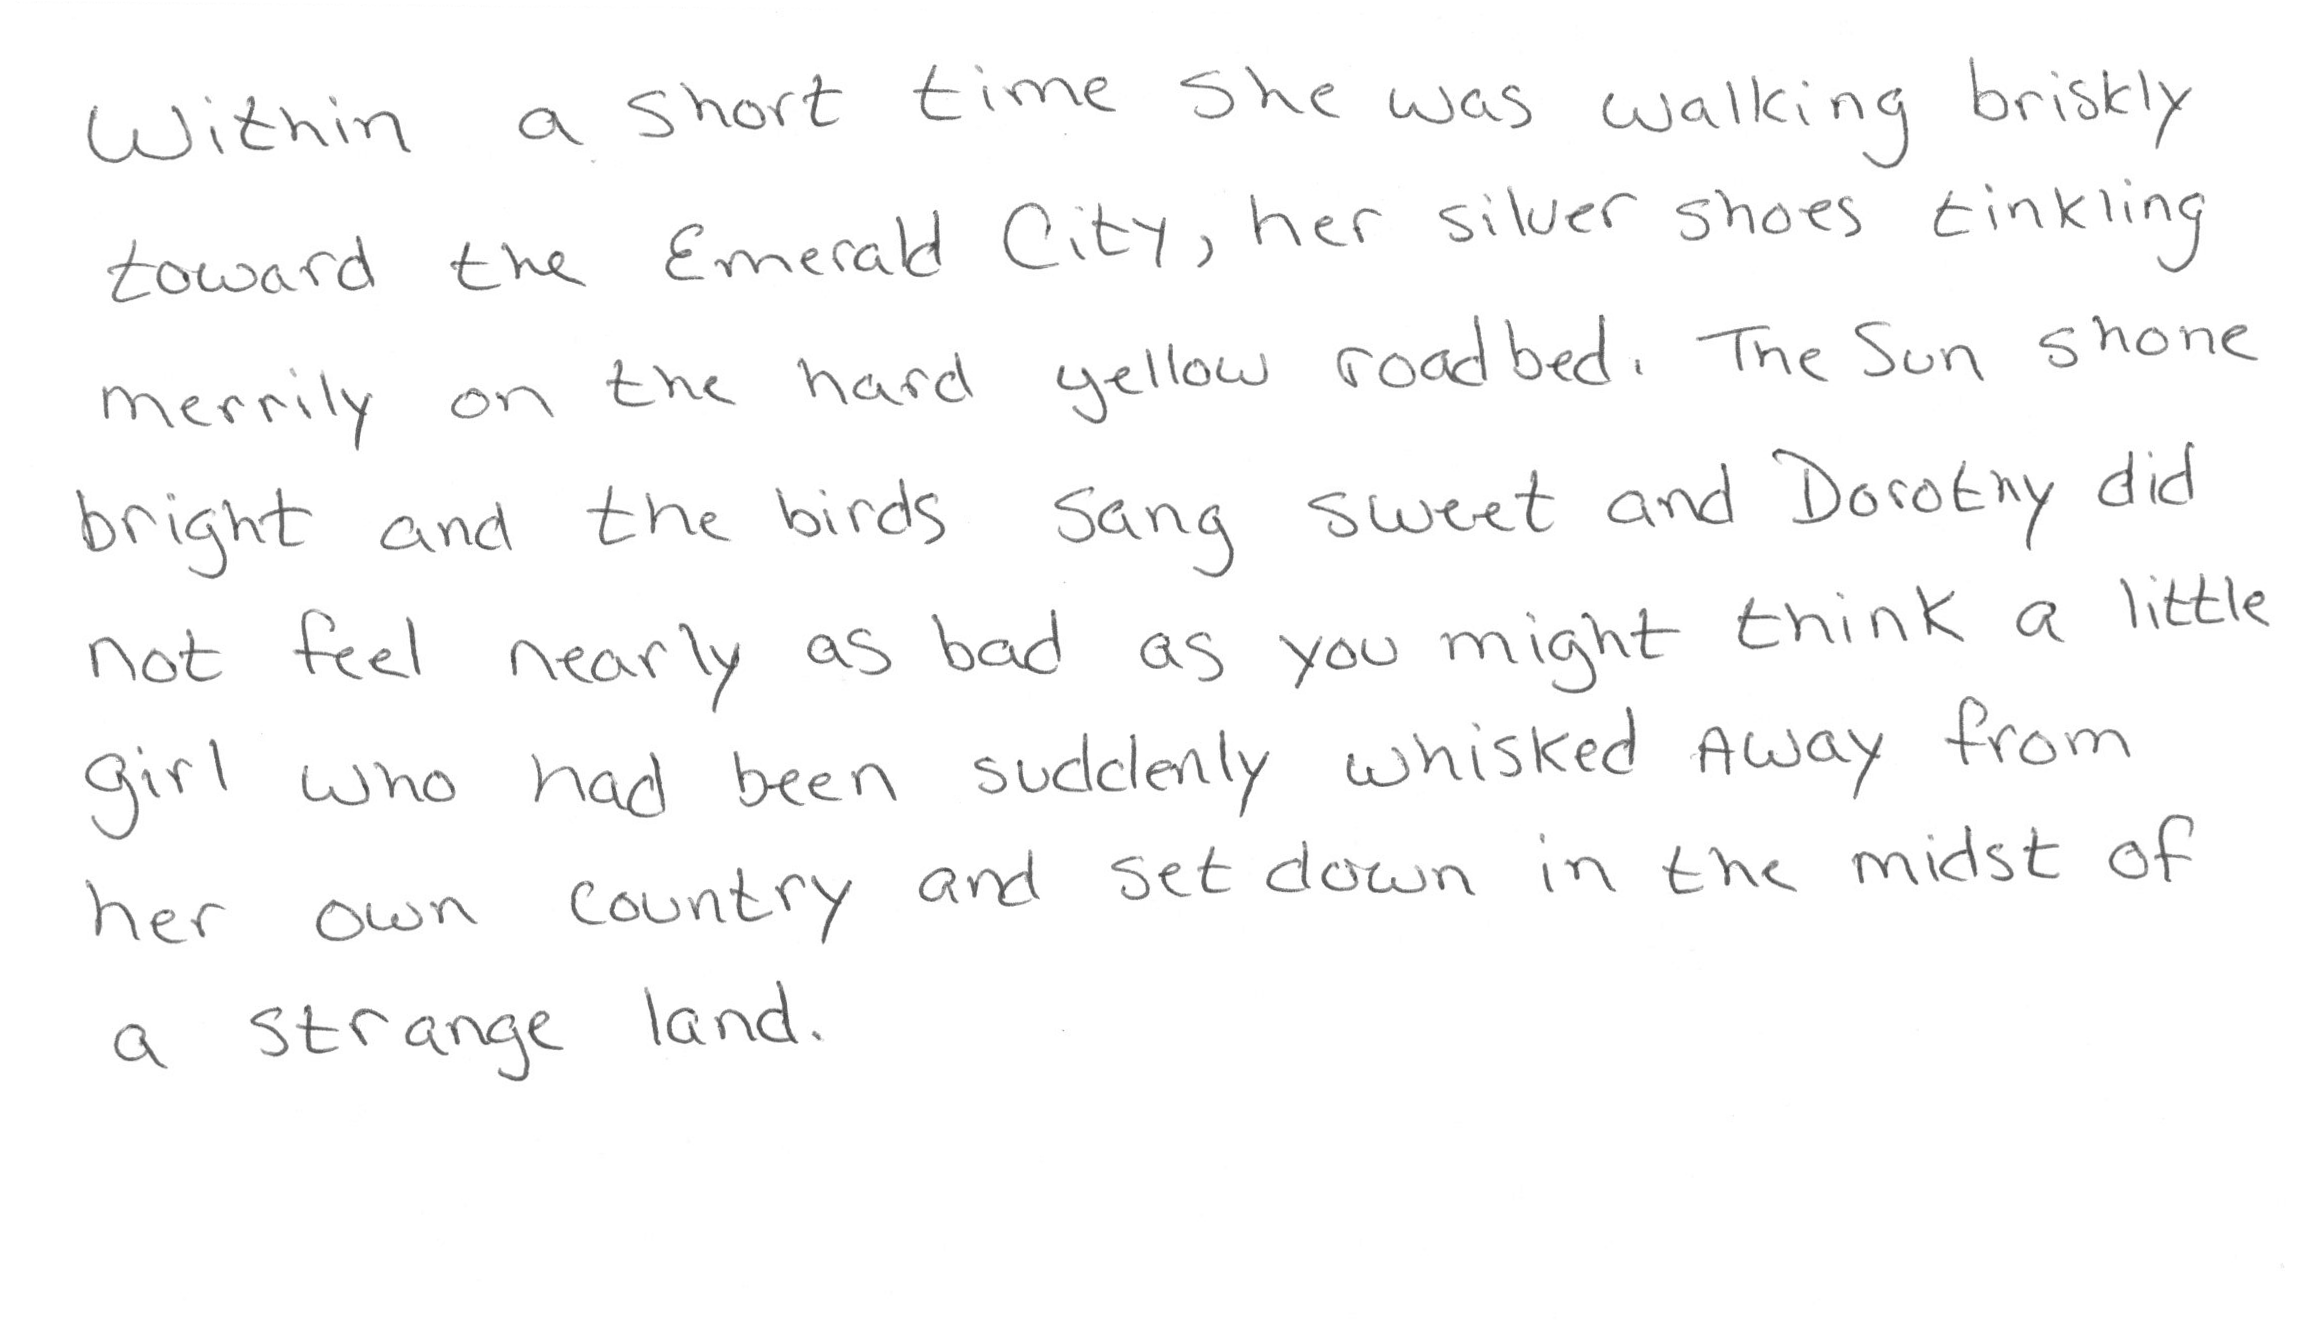 Within a short time she was walking briskly
toward the Emerald City, her silver shoes tinkling
merrily on the hard yellow roadbed. The Sun shone
bright and the birds sang sweet and Dorothy did
not feel nearly as bad as you might think a little
girl who had been suddenly whisked Away from
her own country and set down in the midst of
a strange land.